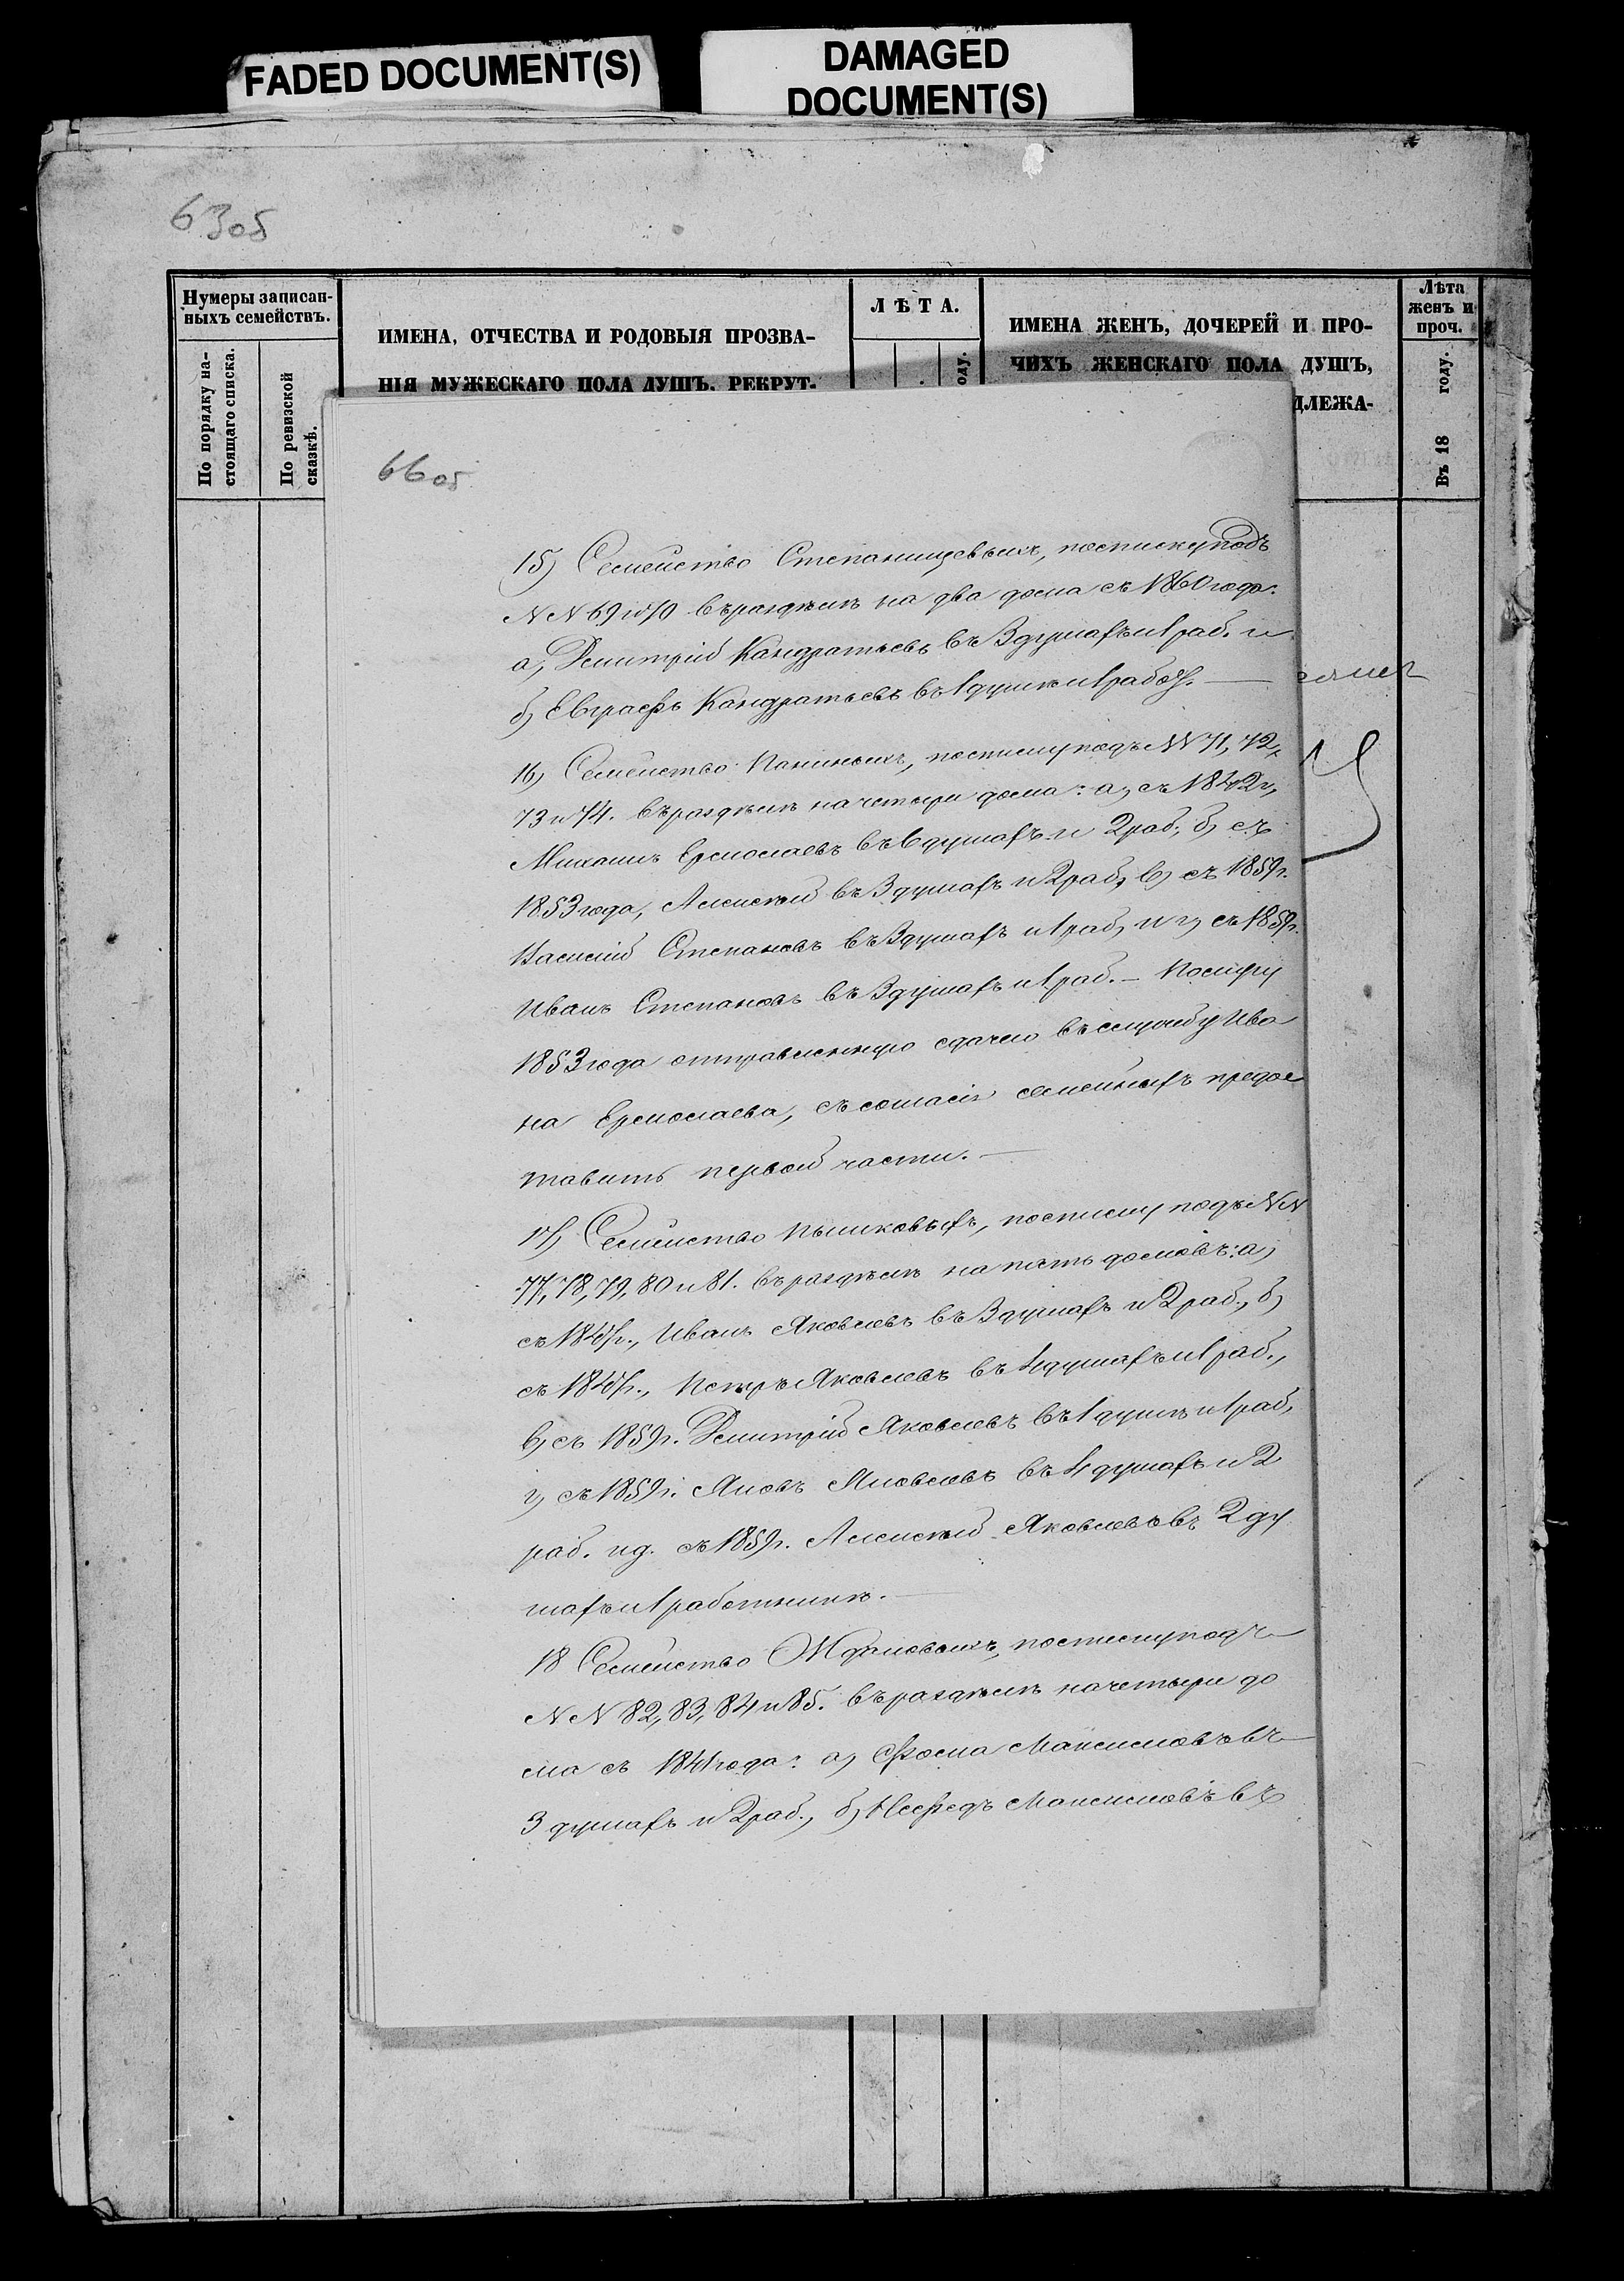 FADED DOCUMENT(S)
DAMAGED
DOCUMENT(S)
63об
Нумеры записан-
ныхъ семействъ.
По порядку на-
стоящаго списка.
По ревизской
сказкѣ.
ИМЕНА, ОТЧЕСТВА И РОДОВЫЯ ПРОЗВА-
НІЯ МУЖЕСКАГО ПОЛА ДУШЪ. РЕКРУТ-
ЛѢТА.
оду.
ИМЕНА ЖЕНЪ, ДОЧЕРЕЙ И ПРО-
ЧИХЪ ЖЕНСКАГО ПОЛА ДУШЪ,
ДЛЕЖА-
Лѣта
женъ и
проч.
Въ 18 году.
66об
15) Семейство Степанищевыхъ, посписку подъ
NN 69 и 70 въ раздѣлѣ на два дома съ 1860 года:
а) Дмитрій Кандратьевъ въ 3 душахъ и 1 раб. и
б) Евграфъ Кандратьевъ въ 1 душѣ и 1 раб.
16) Семейство Паниныхъ, посписку подъ NN 71, 72,
73 и 74. въ раздѣлѣ на четыри дома: а) съ 1842 г,
Михаилъ Ермолаевъ въ 6 душахъ и 2 раб; б) съ
1853 года, Алексѣй въ 3 душахъ и 2 раб, в) съ 1859 г.
Василій Степановъ въ 3 душахъ и 1 раб, и г) съ 1859 г.
Иванъ Степановъ въ 3 душахъ и 1 раб. — Послугу
1853 года отправленную сдачею въ службу Ива
на Ермолаева, съ согласія семейныхъ предос
тавить первой части. —
17) Семейство Пышковыхъ, посписку подъ NN
77, 78, 79, 80 и 81. въ раздѣлѣ на пять домовъ: а)
съ 1847 г., Иванъ Яковлевъ въ 3 душахъ и 2 раб., б)
съ 1847 г., Петръ Яковлевъ въ 4 душахъ и 1 раб.,
в) съ 1859 г. Дмитрій Яковлевъ въ 1 душѣ и 1 раб,
г) съ 1859 г. Яковъ Яковлевъ въ 4 душахъ и 2
раб. и д. съ 1859 г. Алексѣй Яковлевъ въ 2 ду
шахъ и 1 работникѣ. —
18 Семейство Ждановыхъ, посписку подъ
NN 82, 83, 84 и 85. въ раздѣлѣ на четыри до
ма съ 1841 года: а) Фома Максимовъ въ
3 душахъ и 2 раб., б) Нефедъ Максимовъ въ